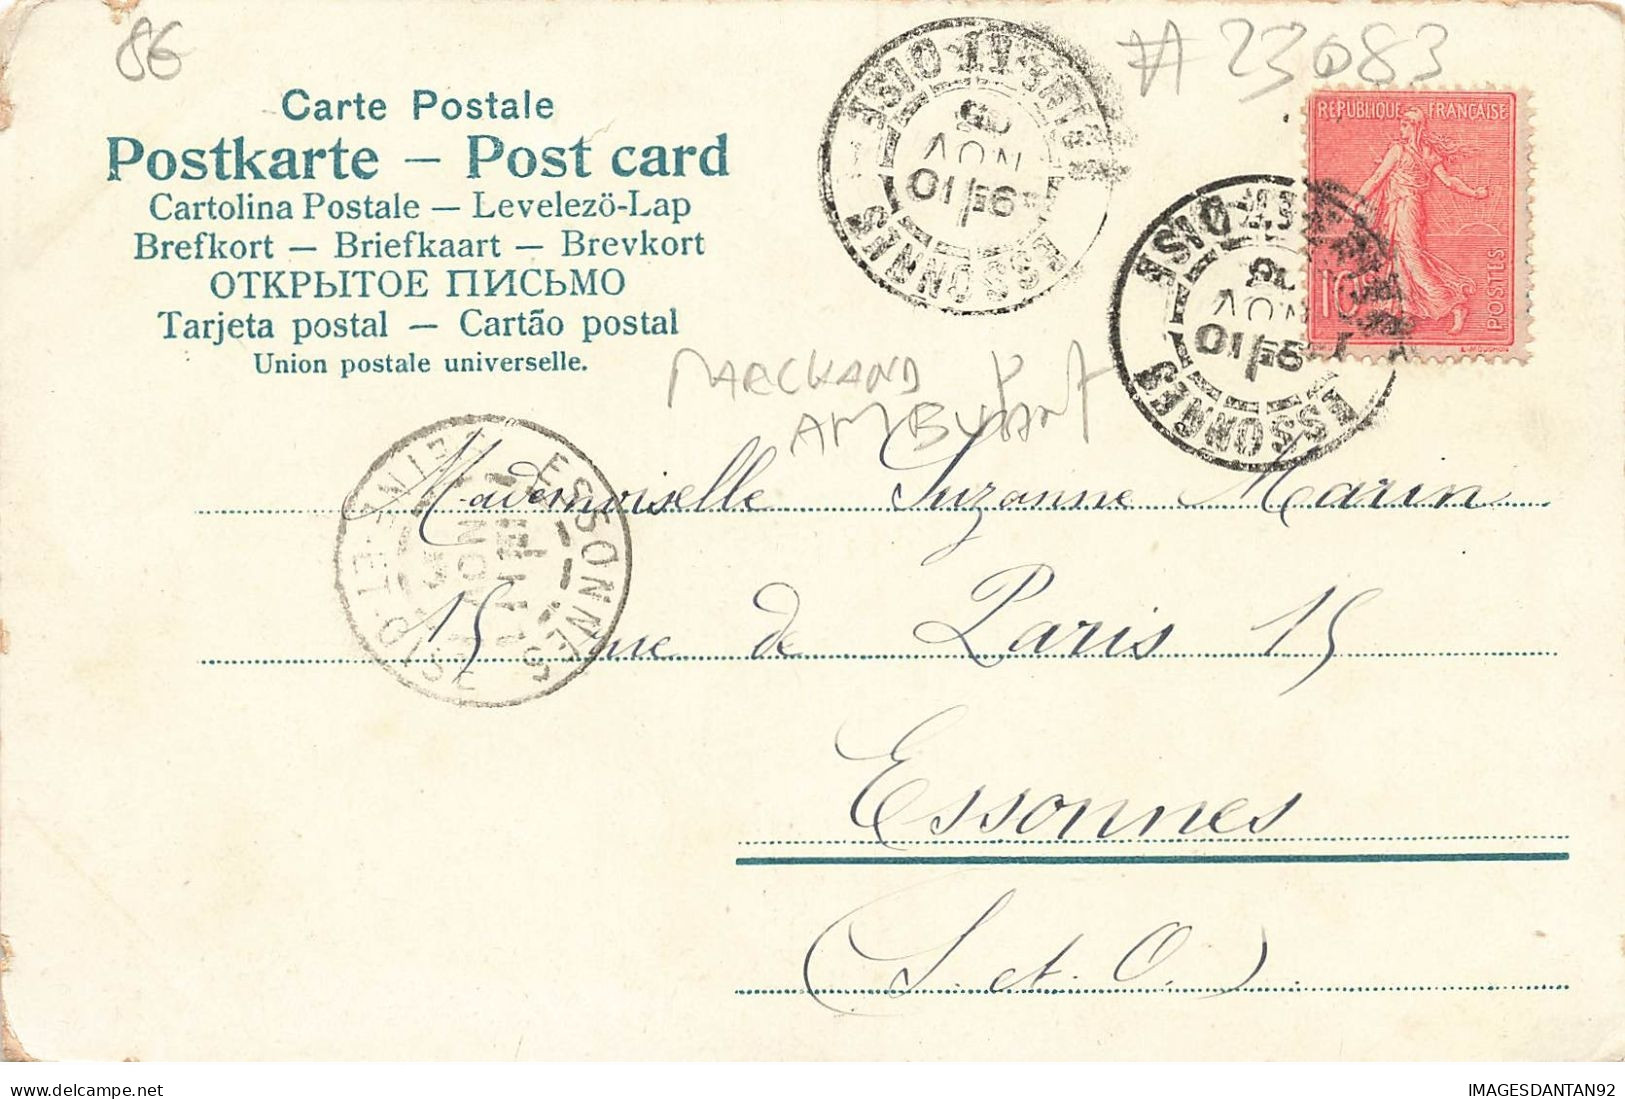 86
# 23083
Carte Postale
Postkarte — Post card
Cartolina Postale — Levelezö-Lap
Brefkort — Briefkaart — Brevkort
ОТКРЫТОЕ ПИСЬМО
Tarjeta postal — Cartão postal
Union postale universelle.
ESSONNES SEINE-ET-OISE
NOV
REPUBLIQUE FRANÇAISE
10
POSTES
ESSONNES
NOV
MARCHAND
AMBULANT
ESSONNES SEINE-ET-OISE
Mademoiselle Suzanne Marin
15 rue de Paris 15
Essonnes
(S. et. O.)
delcampe.net
IMAGESDANTAN92